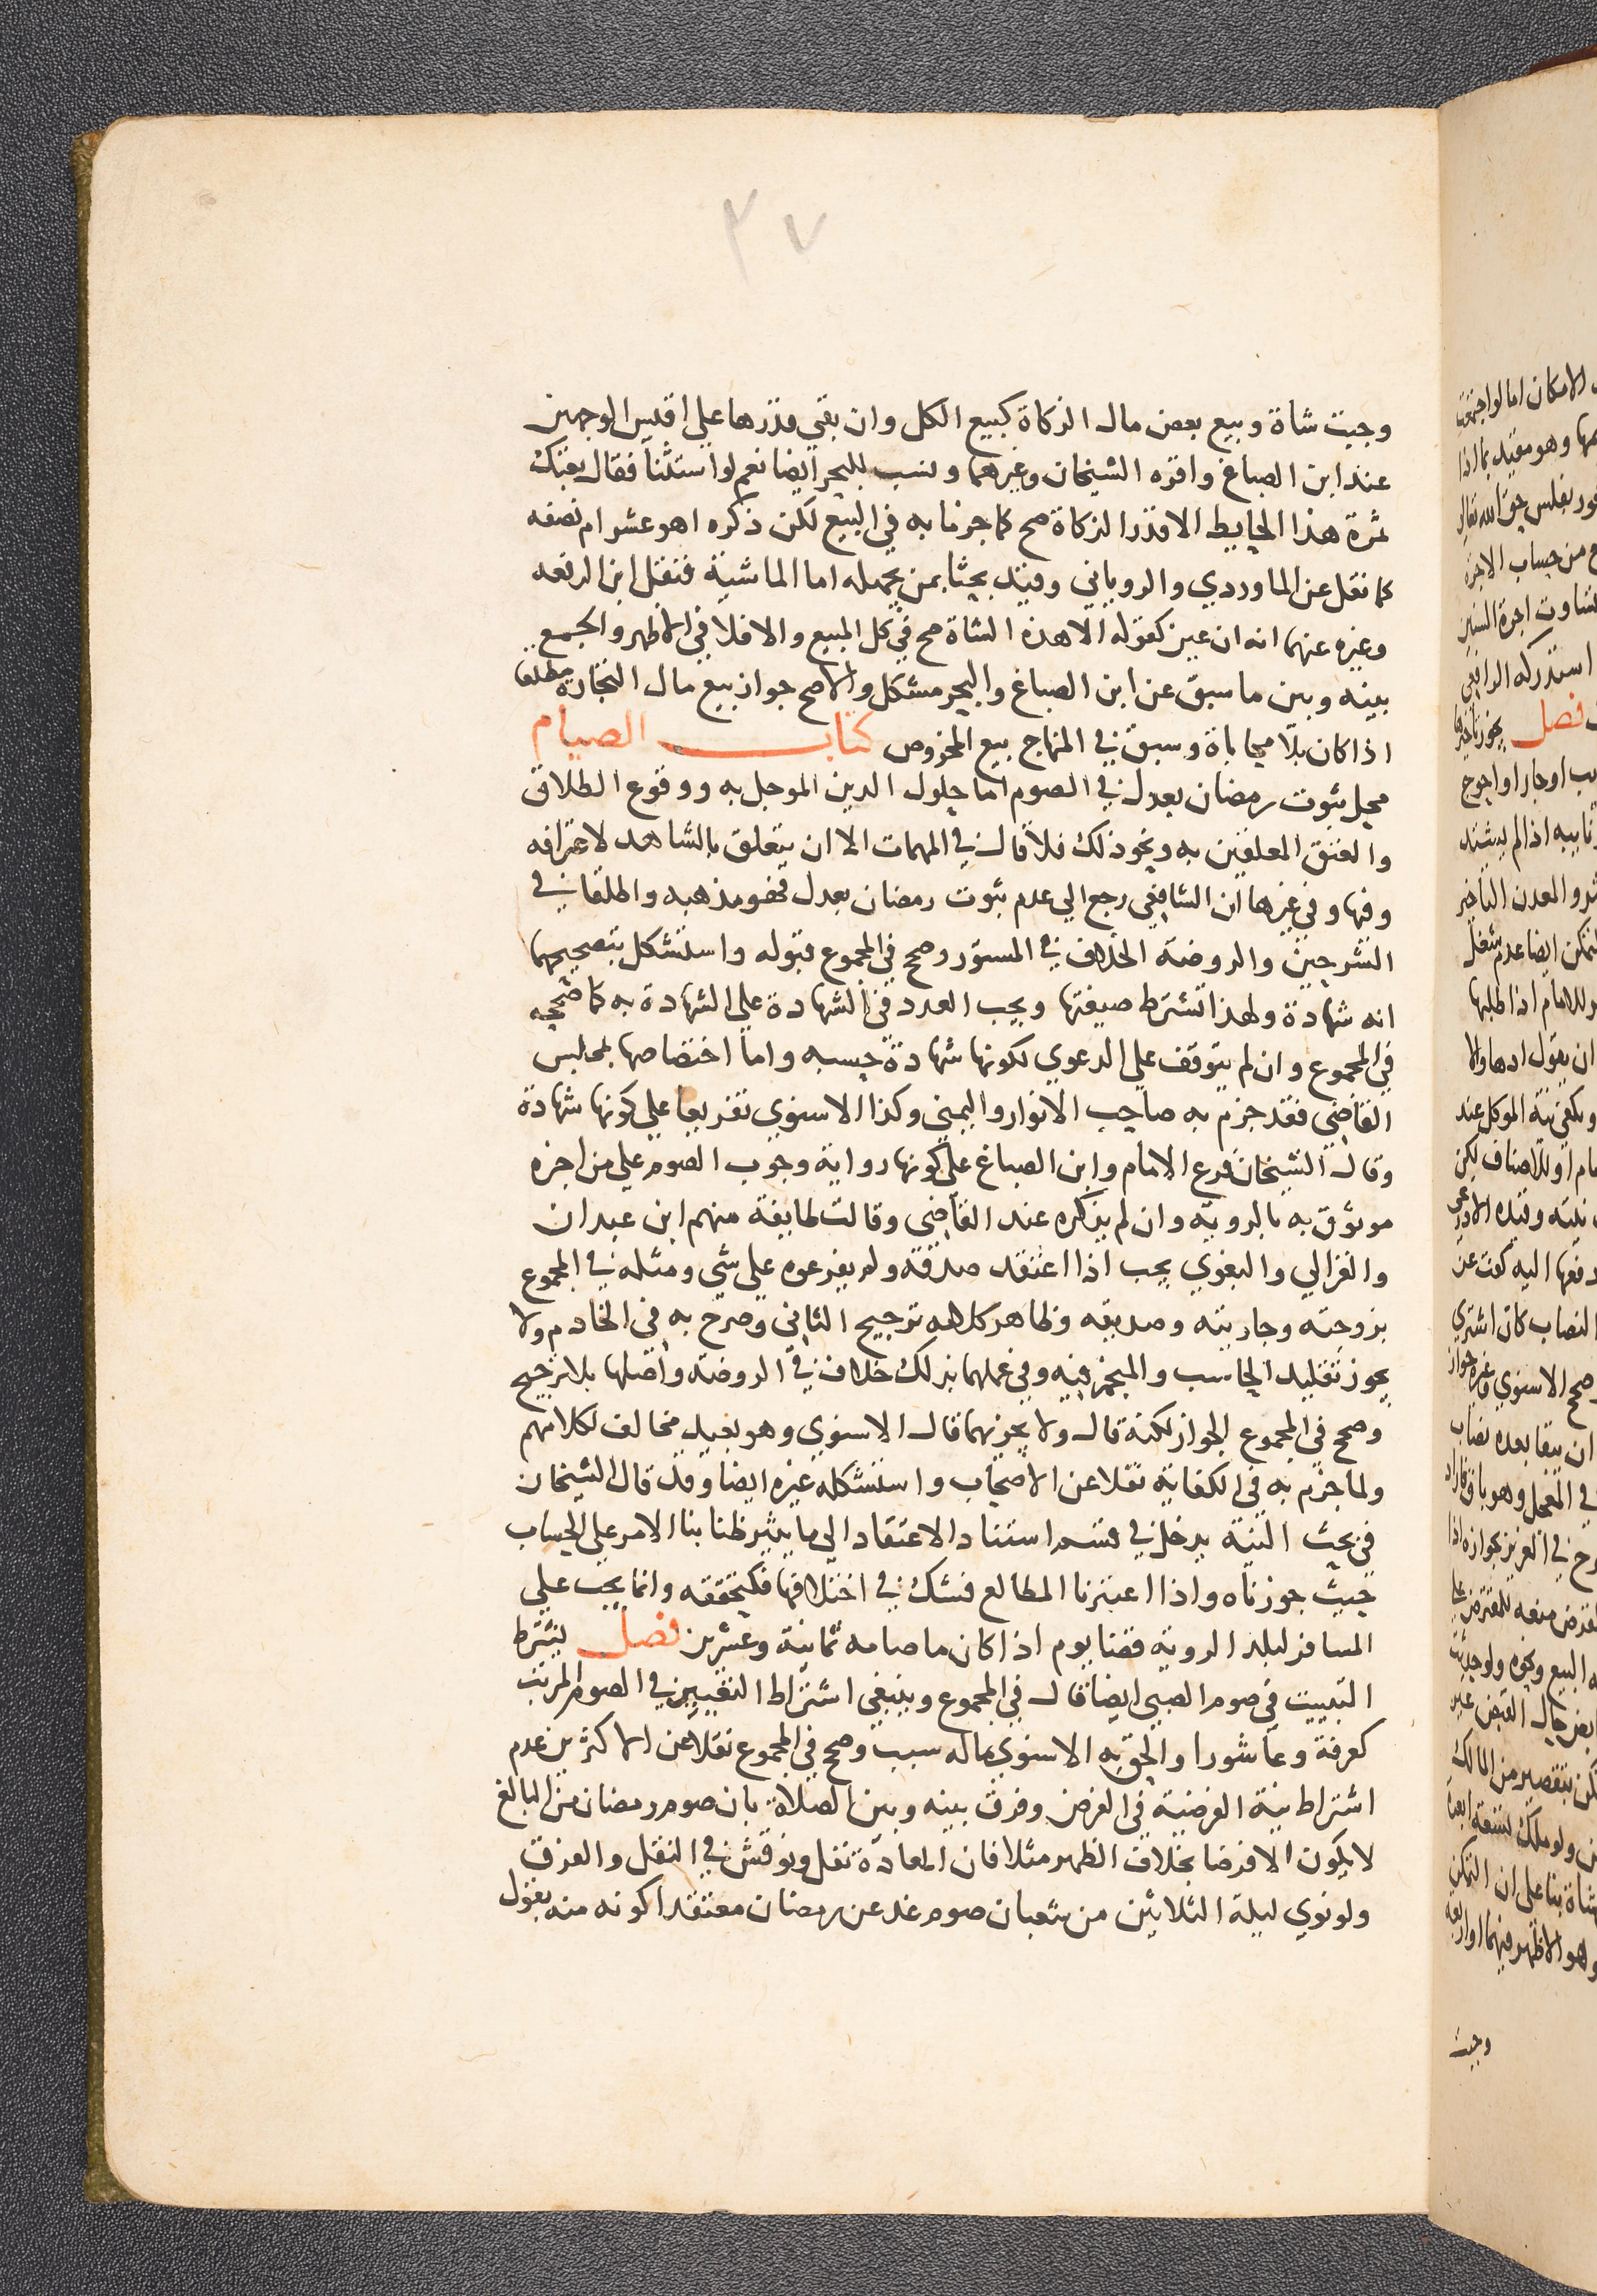 ٣٧
وجبت شاة وبيع بعض مال الزكاة كبيع الكل وان بقي قدرها علي اقيس الوجهين
عند ابن الصباغ واقره الشيخان وغيرهما ونسب للبحر ايضا نعم لو استثنا فقال بعتك
ثمرة هذا الحايط الا قدر الزكاة صح كما جزما به في البيع لكن ذكره اهو عشر ام نصفه
كما نقل عن الماوردي والروياني وقيد بحثا بمن يجهله اما الماشية فنقل ابن الرفعه
وغيره عنهما انه ان عين كقوله الا هذه الشاة صح في كل المبيع والا فلا في الاظهر والجمع
بينه وبين ما سبق عن ابن الصباغ والبحر مشكل والاصح جواز بيع مال التجارة مطلقا
اذا كان بلا محاباة وسبق في المنهاج بيع المخروص كتاب الصيام
محل ثبوت رمضان بعدل في الصوم اما حلول الدين الموجل به ووقوع الطلاق
والعتق المعلقين به ونحو ذلك فلا قال في المهمات الا ان يتعلق بالشاهد لاعترافه
وفيها وفي غيرها ان الشافعي رجع الي عدم ثبوت رمضان بعدل فهو مذهبه واطلقا في
الشرحين والروضة الخلاف في المستور وصحح في المجموع قبوله واستشكل بتصحيحهما
انه شهادة ولهذا تشترط صيغتها ويجب العدد في الشهادة علي الشهادة به كما صححه
في المجموع وان لم يتوقف علي الدعوي لكونها شهادة حسبه واما اختصاصها بمجلس
القاضي فقد جزم به صاحب الانوار واليمني وكذا الاسنوي تفريعا علي كونها شهادة
وقال الشيخان فرع الامام وابن الصباغ علي كونها رواية وجوب الصوم علي من اخبره
موثوق به بالروية وان لم يذكره عند القاضي وقالت طايفة منهم ابن عبدان
والغزالي والبغوي يجب اذا اعتقد صدقه ولم يفرعوه علي شي ومثله في المجموع
بزوجته وجاريته وصديقه وظاهر كلامه ترجيح الثاني وصرح به في الخادم ولا
يجوز تقليد الحاسب والمنجم فيه وفي عملهما بذلك خلاف في الروضة واصلها بلا ترجيح
وصحح في المجموع الجواز لكنه قال ولا يجزيهما قال الاسنوي وهو بعيد مخالف لكلامهم
ولما جزم به في الكفاية نقلا عن الاصحاب واستشكله غيره ايضا وقد قال الشيخان
في بحث النية يدخل في قسم استناد الاعتقاد الي ما يثير ظنا بنا الامر علي الحساب
حيث جوزناه واذا اعتبرنا المطالع فشك في اختلافها فكتحققه وانما يجب علي
المسافر لبلد الروية قضا يوم اذا كان ما صامه ثمانية وعشرين فصل يشترط
التبييت في صوم الصبي ايضا قال في المجموع وينبغي اشتراط التعيين في الصوم المرتب
كعرفة وعاشورا والحق به الاسنوي ماله سبب وصحح في المجموع نقلا عن الاكثرين عدم
اشتراط نية الفرضية في الفرض وفرق بينه وبين الصلاة بان صوم رمضان من البالغ
لا يكون الا فرضا بخلاف الظهر مثلا فان المعادة نفل ونوقش في النقل والفرق
ولو نوي ليلة الثلاثين من شعبان صوم غد عن رمضان معتقدا كونه منه بقول
وجبت